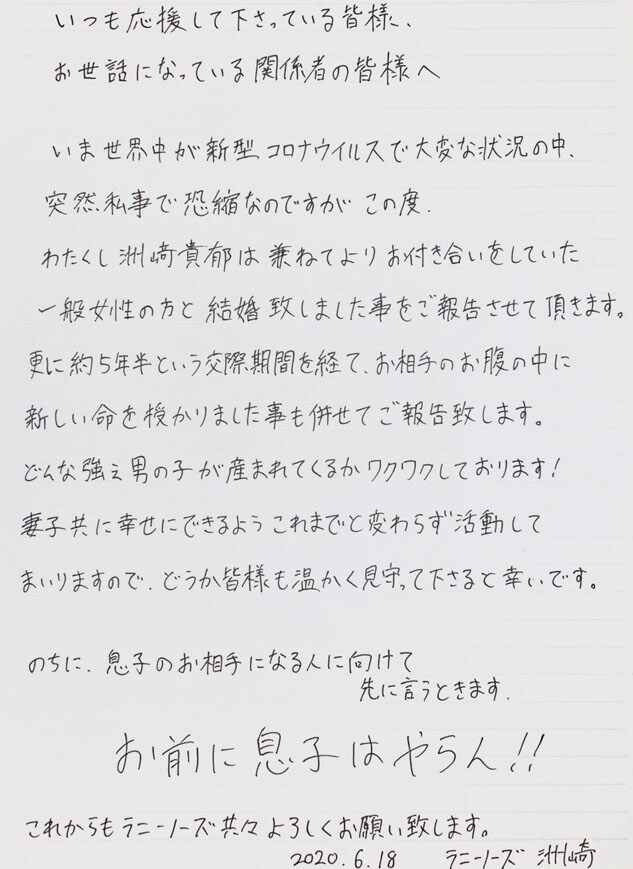 いつも応援して下さっている皆様、
お世話になっている関係者の皆様へ
いま世界中が新型コロナウイルスで大変な状況の中、
突然私事で恐縮なのですがこの度、
わたくし洲崎貴郁は兼ねてよりお付き合いをしていた
一般女性の方と結婚致しました事をご報告させて頂きます。
更に約5年半という交際期間を経て、お相手のお腹の中に
新しい命を授かりました事も併せてご報告致します。
どんな強ぇ男の子が産まれてくるかワクワクしております!
妻子共に幸せにできるようこれまでと変わらず活動して
まいりますので、どうか皆様も温かく見守って下さると幸いです。
のちに、息子のお相手になる人に向けて
先に言うときます。
お前に息子はやらん!!
これからもラニーノーズ共々よろしくお願い致します。
2020.6.18 ラニーノーズ 洲崎